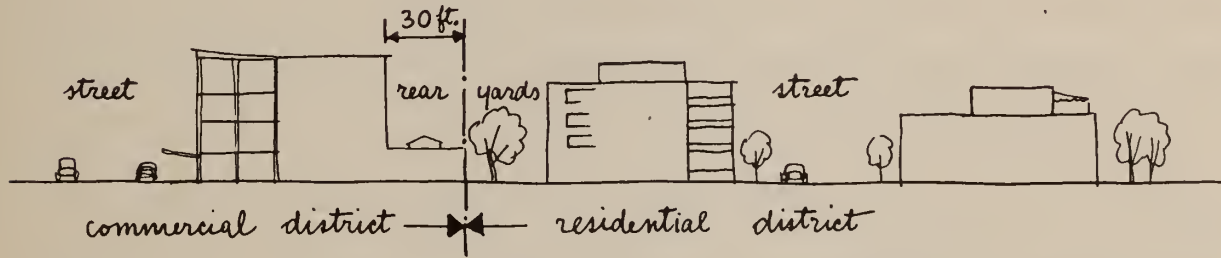 30 ft.
street rear yards street
commercial district residential district